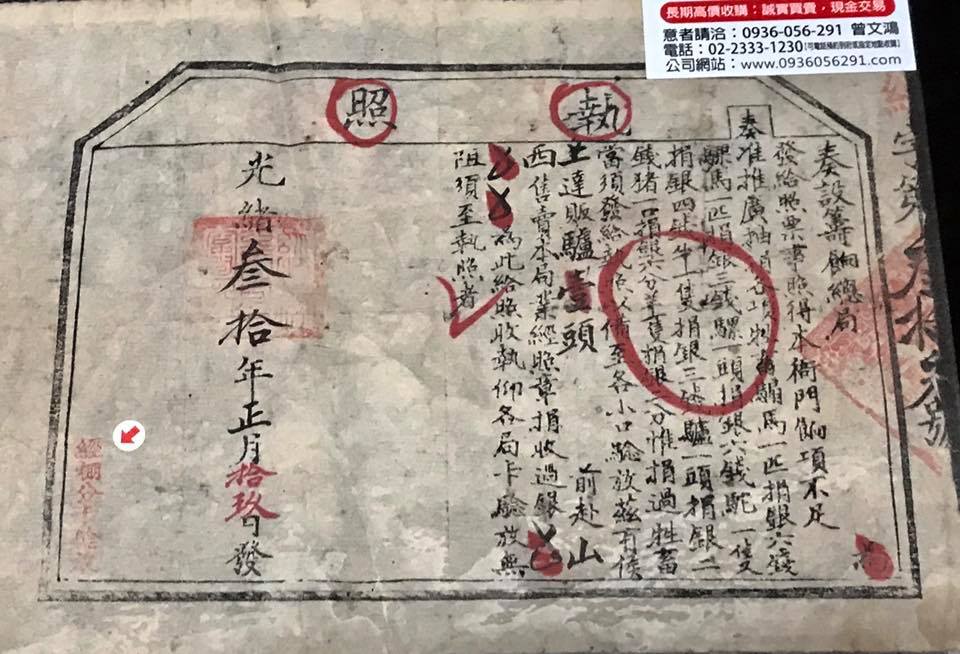 長期高價收購：誠實買賣，現金交易
意者請洽：0936-056-291 曾文鴻
電話：02-2333-1230
公司網站：www.0936056291.com
執照
字第叁拾 號
奏設籌餉總局
發給照票事照得本衙門餉項不足
奏准推廣抽 各項牲畜騸馬一匹捐銀六錢
騍馬一匹捐銀三錢騾一頭捐銀六錢駝一隻
捐銀四錢牛一隻捐銀三錢驢一頭捐銀二
錢猪一口捐銀六分羊一隻捐銀二分惟捐過牲畜
當須發給執照以備至各小口驗放茲有候
王達販驢壹頭 前赴山
西售賣本局業經照章捐收過銀
為此給照收執仰各局卡驗放無
阻須至執照者
光緒叁拾年正月拾玖日發
經棚分